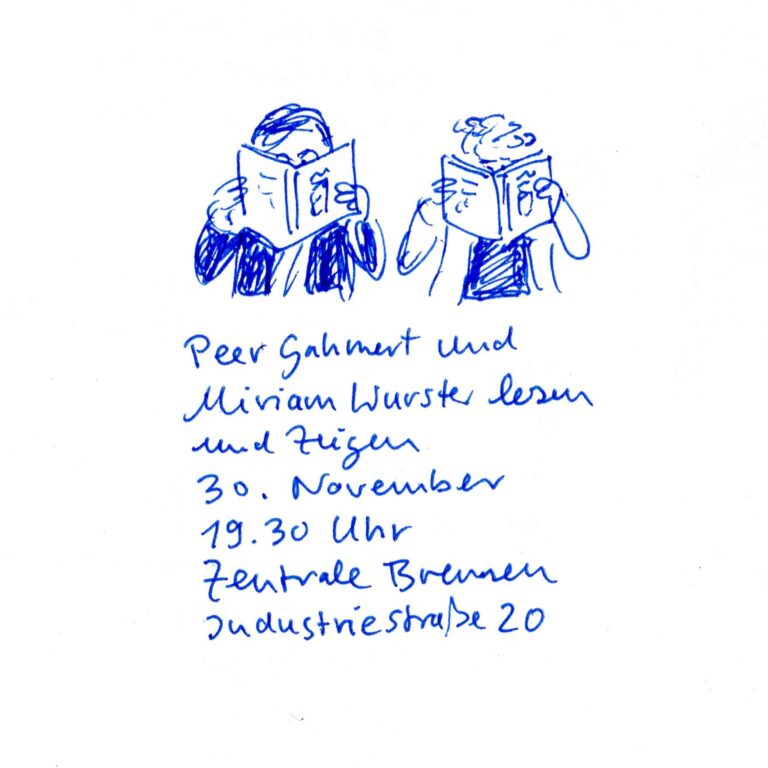 Peer Gahmert und
Miriam Wurster lesen
und zeigen
30. November
19.30 Uhr
Zentrale Bremen
Industriestraße 20